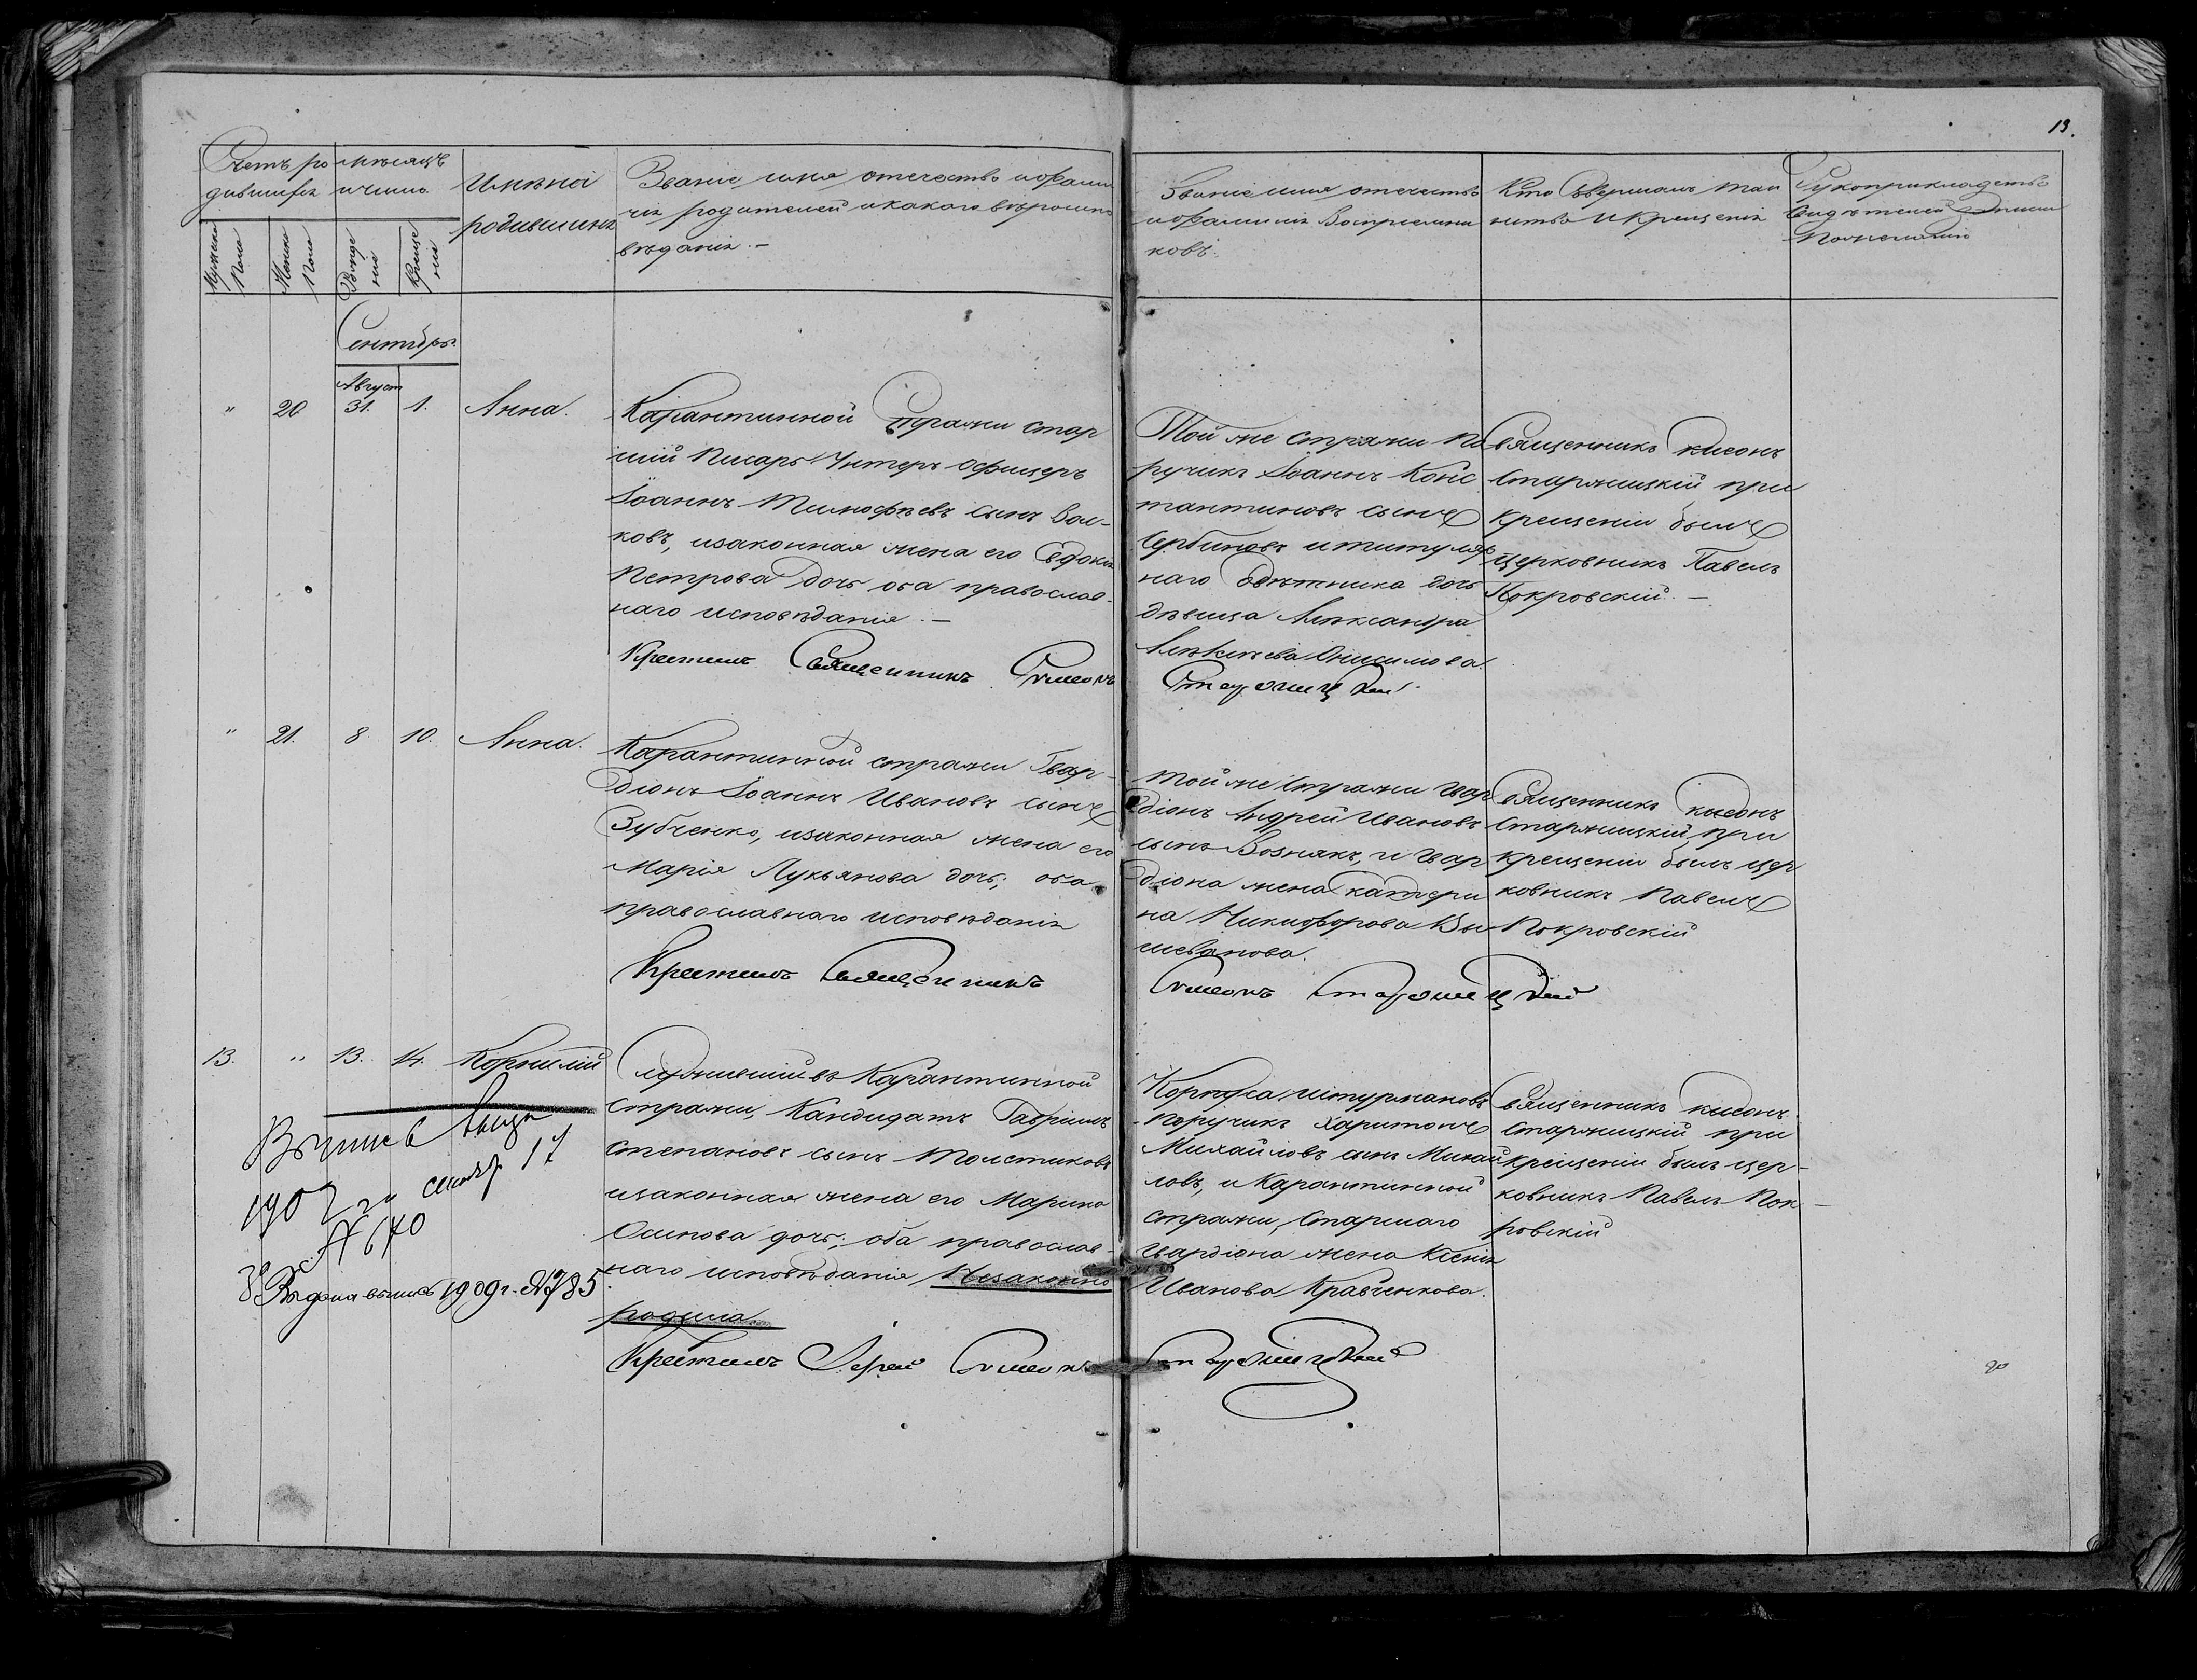 13.
Счетъ ро
дившихся
Мѣсяцъ
и число.
Имена
родившихся
Званіе, имя, отечество и фами
лія родителей и какого вѣроиспо
вѣданія. —
Званіе имя отечество
и фамилія Воспріемни
ковъ.
Кто Совершалъ таи
нство Крещенія
Рукоприкладство
Свидѣтелей записи
по желанію
Мужска
Пола
Женска
Пола
Рожде
нія
Креще
нія
Сентябрь.
Август
" 20 31. 1. Анна.
Карантинной Стражи стар
шій Писарь Унтеръ Офицеръ
Іоаннъ Тимофѣевъ сынъ Вол-
ковъ, и законная жена его Евдокія
Петрова дочь оба православ-
наго исповѣданія. —
Той же стражи По
ручикъ Іоаннъ Конс
тантиновъ сынъ
Сербиновъ и титуляр
наго Совѣтника дочь
дѣвица Александра
Алексѣева Онисимова.
Священникъ Симеонъ
Старжицкій при
крещеніи былъ
церковникъ Павелъ
Покровскій. —
Крестилъ Священникъ Симеонъ Старжицкій.
" 21. 8. 10. Анна.
Карантинной стражи Гвар-
діонъ Іоаннъ Ивановъ сынъ
Зубченко, и законная жена его
Марія Лукьянова дочь; оба
православнаго исповѣданія
Той же Стражи Гвар
діонъ Андрей Ивановъ
сынъ Вознякъ, и Гвар
діона жена Катери
на Никифорова Вы
шеванова.
Священникъ Симеонъ
Старжицкій, при
крещеніи былъ цер
ковникъ Павелъ
Покровскій
Крестилъ Священникъ Симеонъ Старжицкій
13. " 13. 14. Корнилій
Служившій въ Карантинной
стражи, Кандидатъ Гавріилъ
Степановъ сынъ Толстиковъ
и законная жена его Марина
Осипова дочь; оба православ-
наго исповѣданія Незаконно
родила.
Корпуса штурмановъ
Поручикъ Харитонъ
Михайловъ сынъ Михай
ловъ, и Карантинной
стражи, Старшаго
Гвардіона жена Ксенія
Иванова Кравченкова.
Священникъ Симеонъ
Старжицкій при
крещеніи былъ цер-
ковникъ Павелъ Пок-
ровскій
Выпись выда
1907 г. сентяб. 17
№ 670
Выдана выпись 1909 г. № 785
Крестилъ Іерей Симеонъ Старжицкій